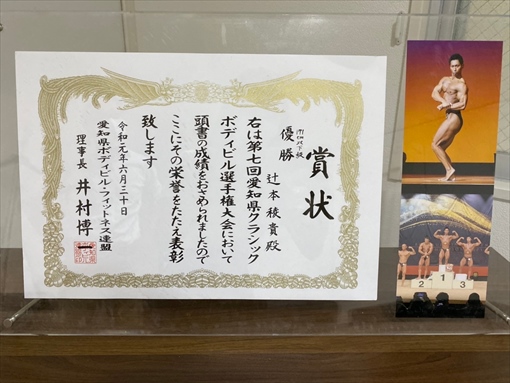 賞状
優勝
辻本稜貴殿
右は第七回愛知県クラシック
ボディビル選手権大会において
頭書の成績をおさめられましたので
ここにその栄誉をたたえ表彰
致します
令和元年六月三十日
愛知県ボディビル・フィットネス連盟
理事長 井村博
2 1 3